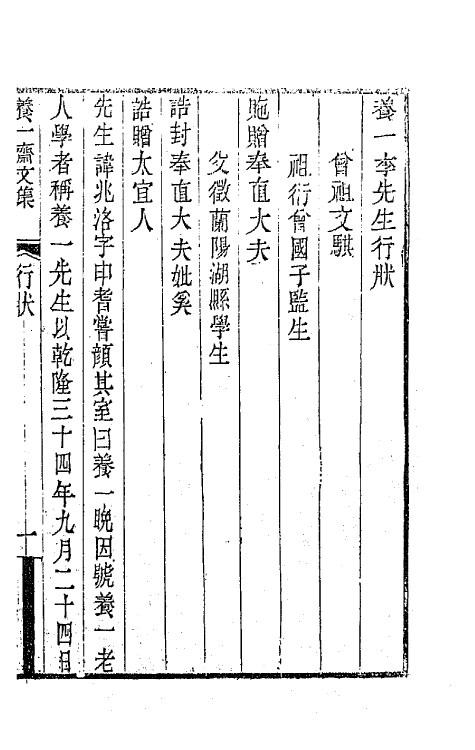 養一李先生行狀
曾祖文騏
祖衍曾國子監生
貤贈奉直大夫
父徵蘭陽湖縣學生
誥封奉直大夫妣奚
誥贈太宜人
先生諱兆洛字申耆嘗顏其室曰養一晚因號養一老
人學者稱養一先生以乾隆三十四年九月二十四日
養一齋文集 行狀 一